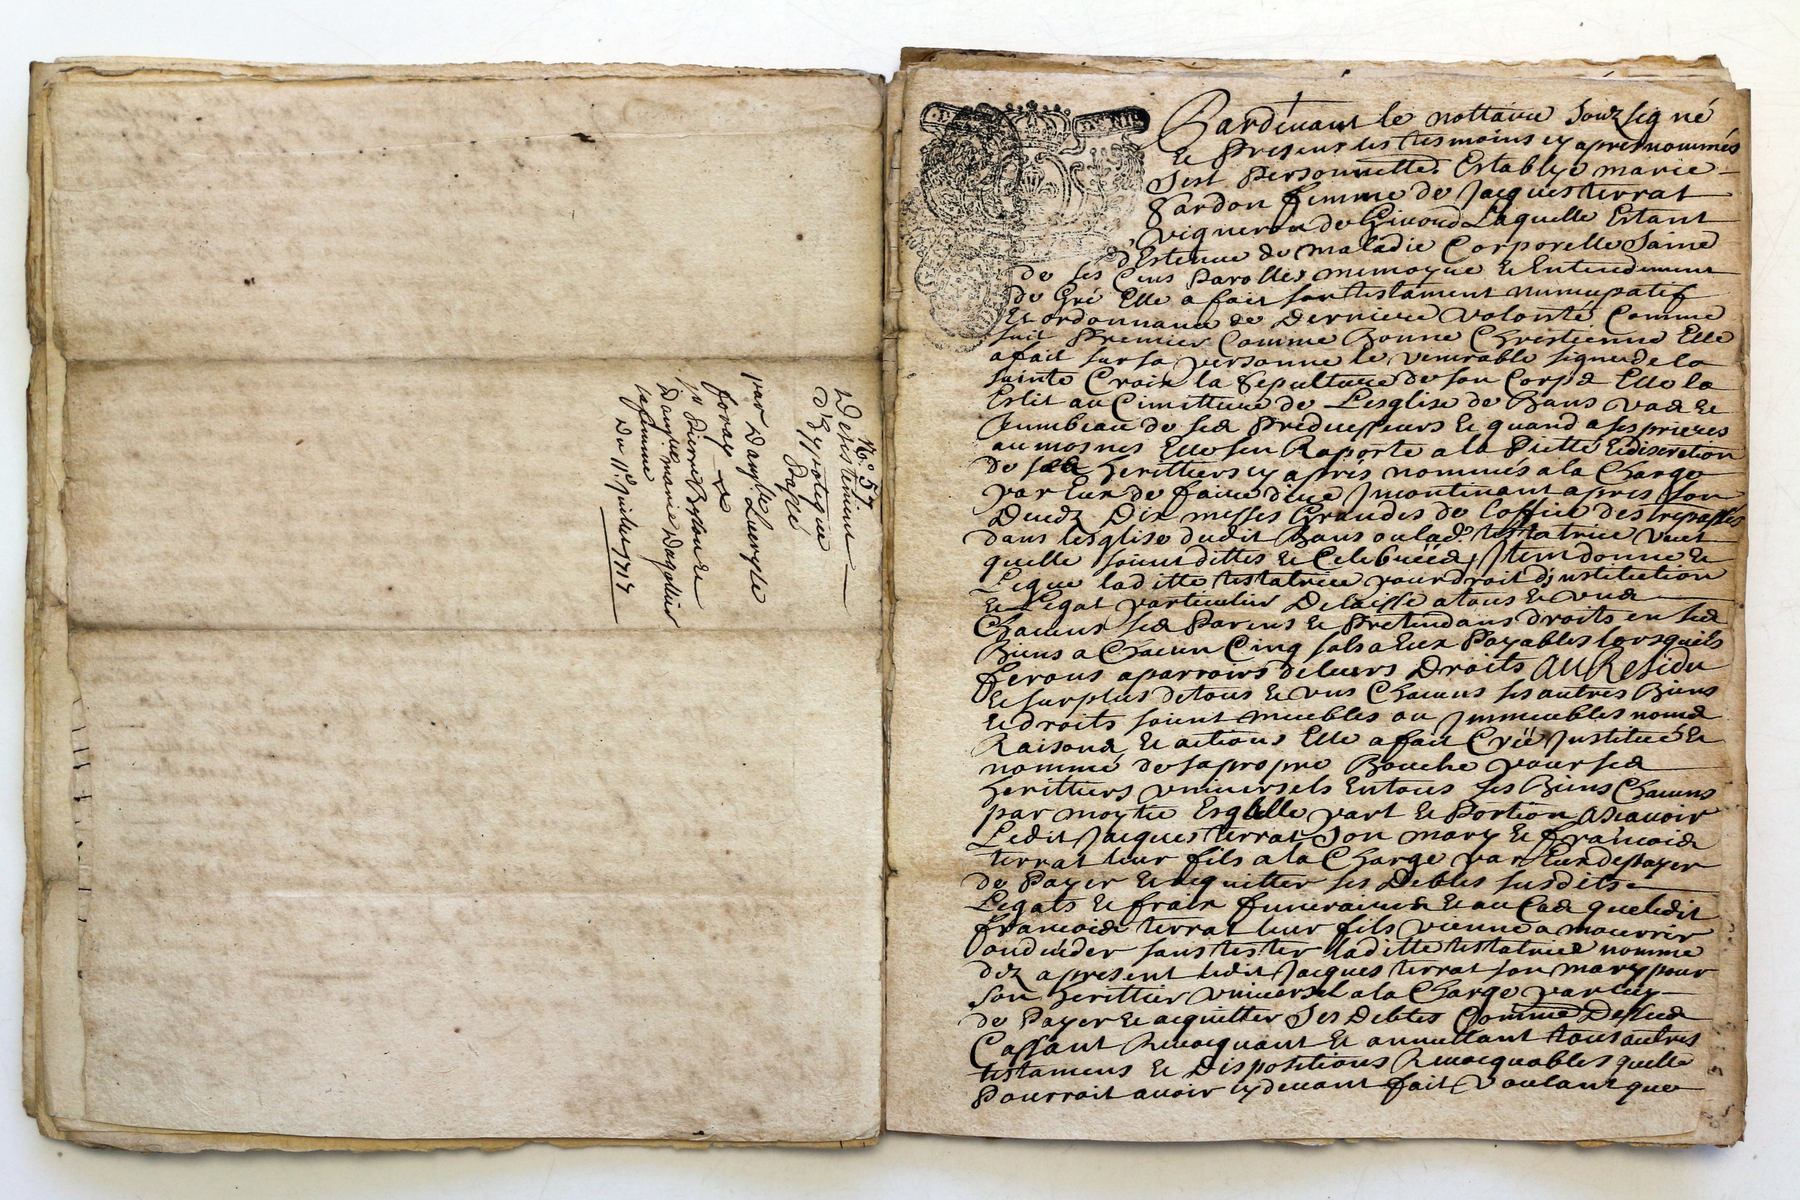 N.° 57
Desistement
D'hypoteque
Passé
par Dam.lle
foray
Sr Pierre et
Dam.lle marie
sa femme
Du 11.e Juillet 1717
Pardevant le nottaire Souzsigné
Et Presens les tesmoins cy apres nommés
Sest Personnellem. Establye marie
Gardon femme de Jacques terrat
vigneron de Givord Laquelle Estant
d'Estenue de maladie Corporelle Saine
de ses Cins Parolles memoyre et Entendement
de Gré Elle a fait son testament nuncupatif
Et ordonnance de Derniere volonté Comme
suit Premier Comme Bonne Chrestienne Elle
a fait sur sa personne le venerable signe de la
sainte Croix la Sepulture de son Corps Elle la
Eslit au Cimittiere de Lesglise de Bans vas et
Tumbeau de ses Predecesseurs Et quand a ses prieres
aumosnes Elle sen Raporte a la Pietté Et discretion
de ses Herittiers cy aprés nommés a la Charge
par Eux de faire dire Jncontinant apres son
Deceds Dix messes Grandes de Loffice des trepassés
dans lesglise dudit Bans ou lad. testatrice veut
quelle soient dittes Et Celebréés Jtem donne Et
Legue laditte testatrice pour droit d'institution
Et Legat particulier Delaisse a tous Et vns
Chacuns ses Parens Et Pretendans droits en ses
Biens a Chacun Cinq sols a Eux Payables lorsquils
feront aparroir de leurs Droits AU Residu
Et surplus de tous Et vns Chacuns ses autres Biens
Et droits soient meubles ou Jmmeubles noms
Raisons Et actions Elle a fait Créé Justitué Et
nommé de sa propre Bouche pour ses
herittiers vniversels En tous ses Biens Chacuns
par moytie Esgalle part Et Portion Ascavoir
Ledit Jacques terrat Son mary Et francois
terrat leur fils a la Charge par Eux de payer
de Payer Et acquitter ses Debtes susdits
Legats Et frais funeraires Et au Cas que ledit
francois terrat leur fils vienne a mourrir
ou deceder sans tester laditte testatrice nomme
dez apresent ledit Jacques terrat son mary pour
son herittier vniversel a la Charge par luy
de Payer Et acquitter Ses Debtes Comme Dessus
Cassant Revocquant Et annullant tous autres
testamens Et Dispositions Revocquables quelle
Pourroit avoir cy devant fait Voulant que